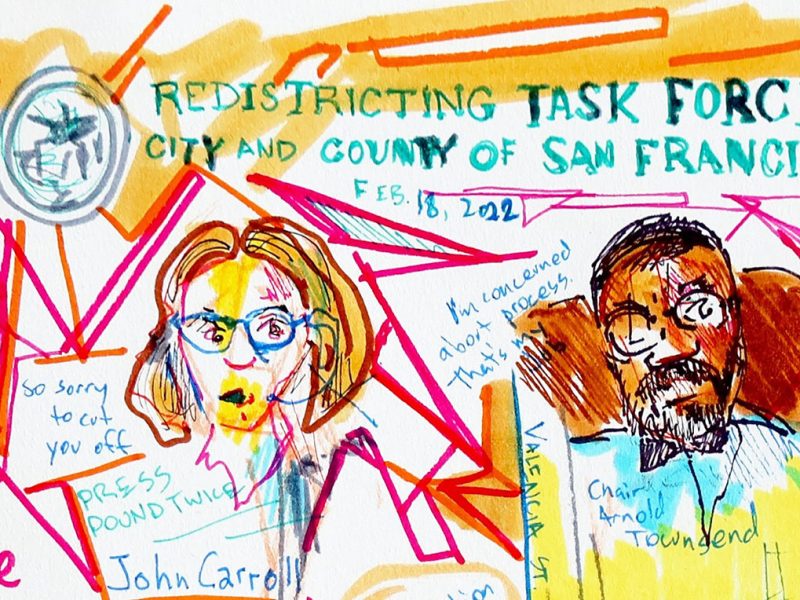 REDISTRICTING TASK FORC
CITY AND COUNTY OF SAN FRANCI
FEB. 18, 2022
I'm concerned
about process.
that's my
job
So sorry
to cut
you off
PRESS
POUND TWICE
John Carroll
VALENCIA ST.
Chair
Arnold
Townsend